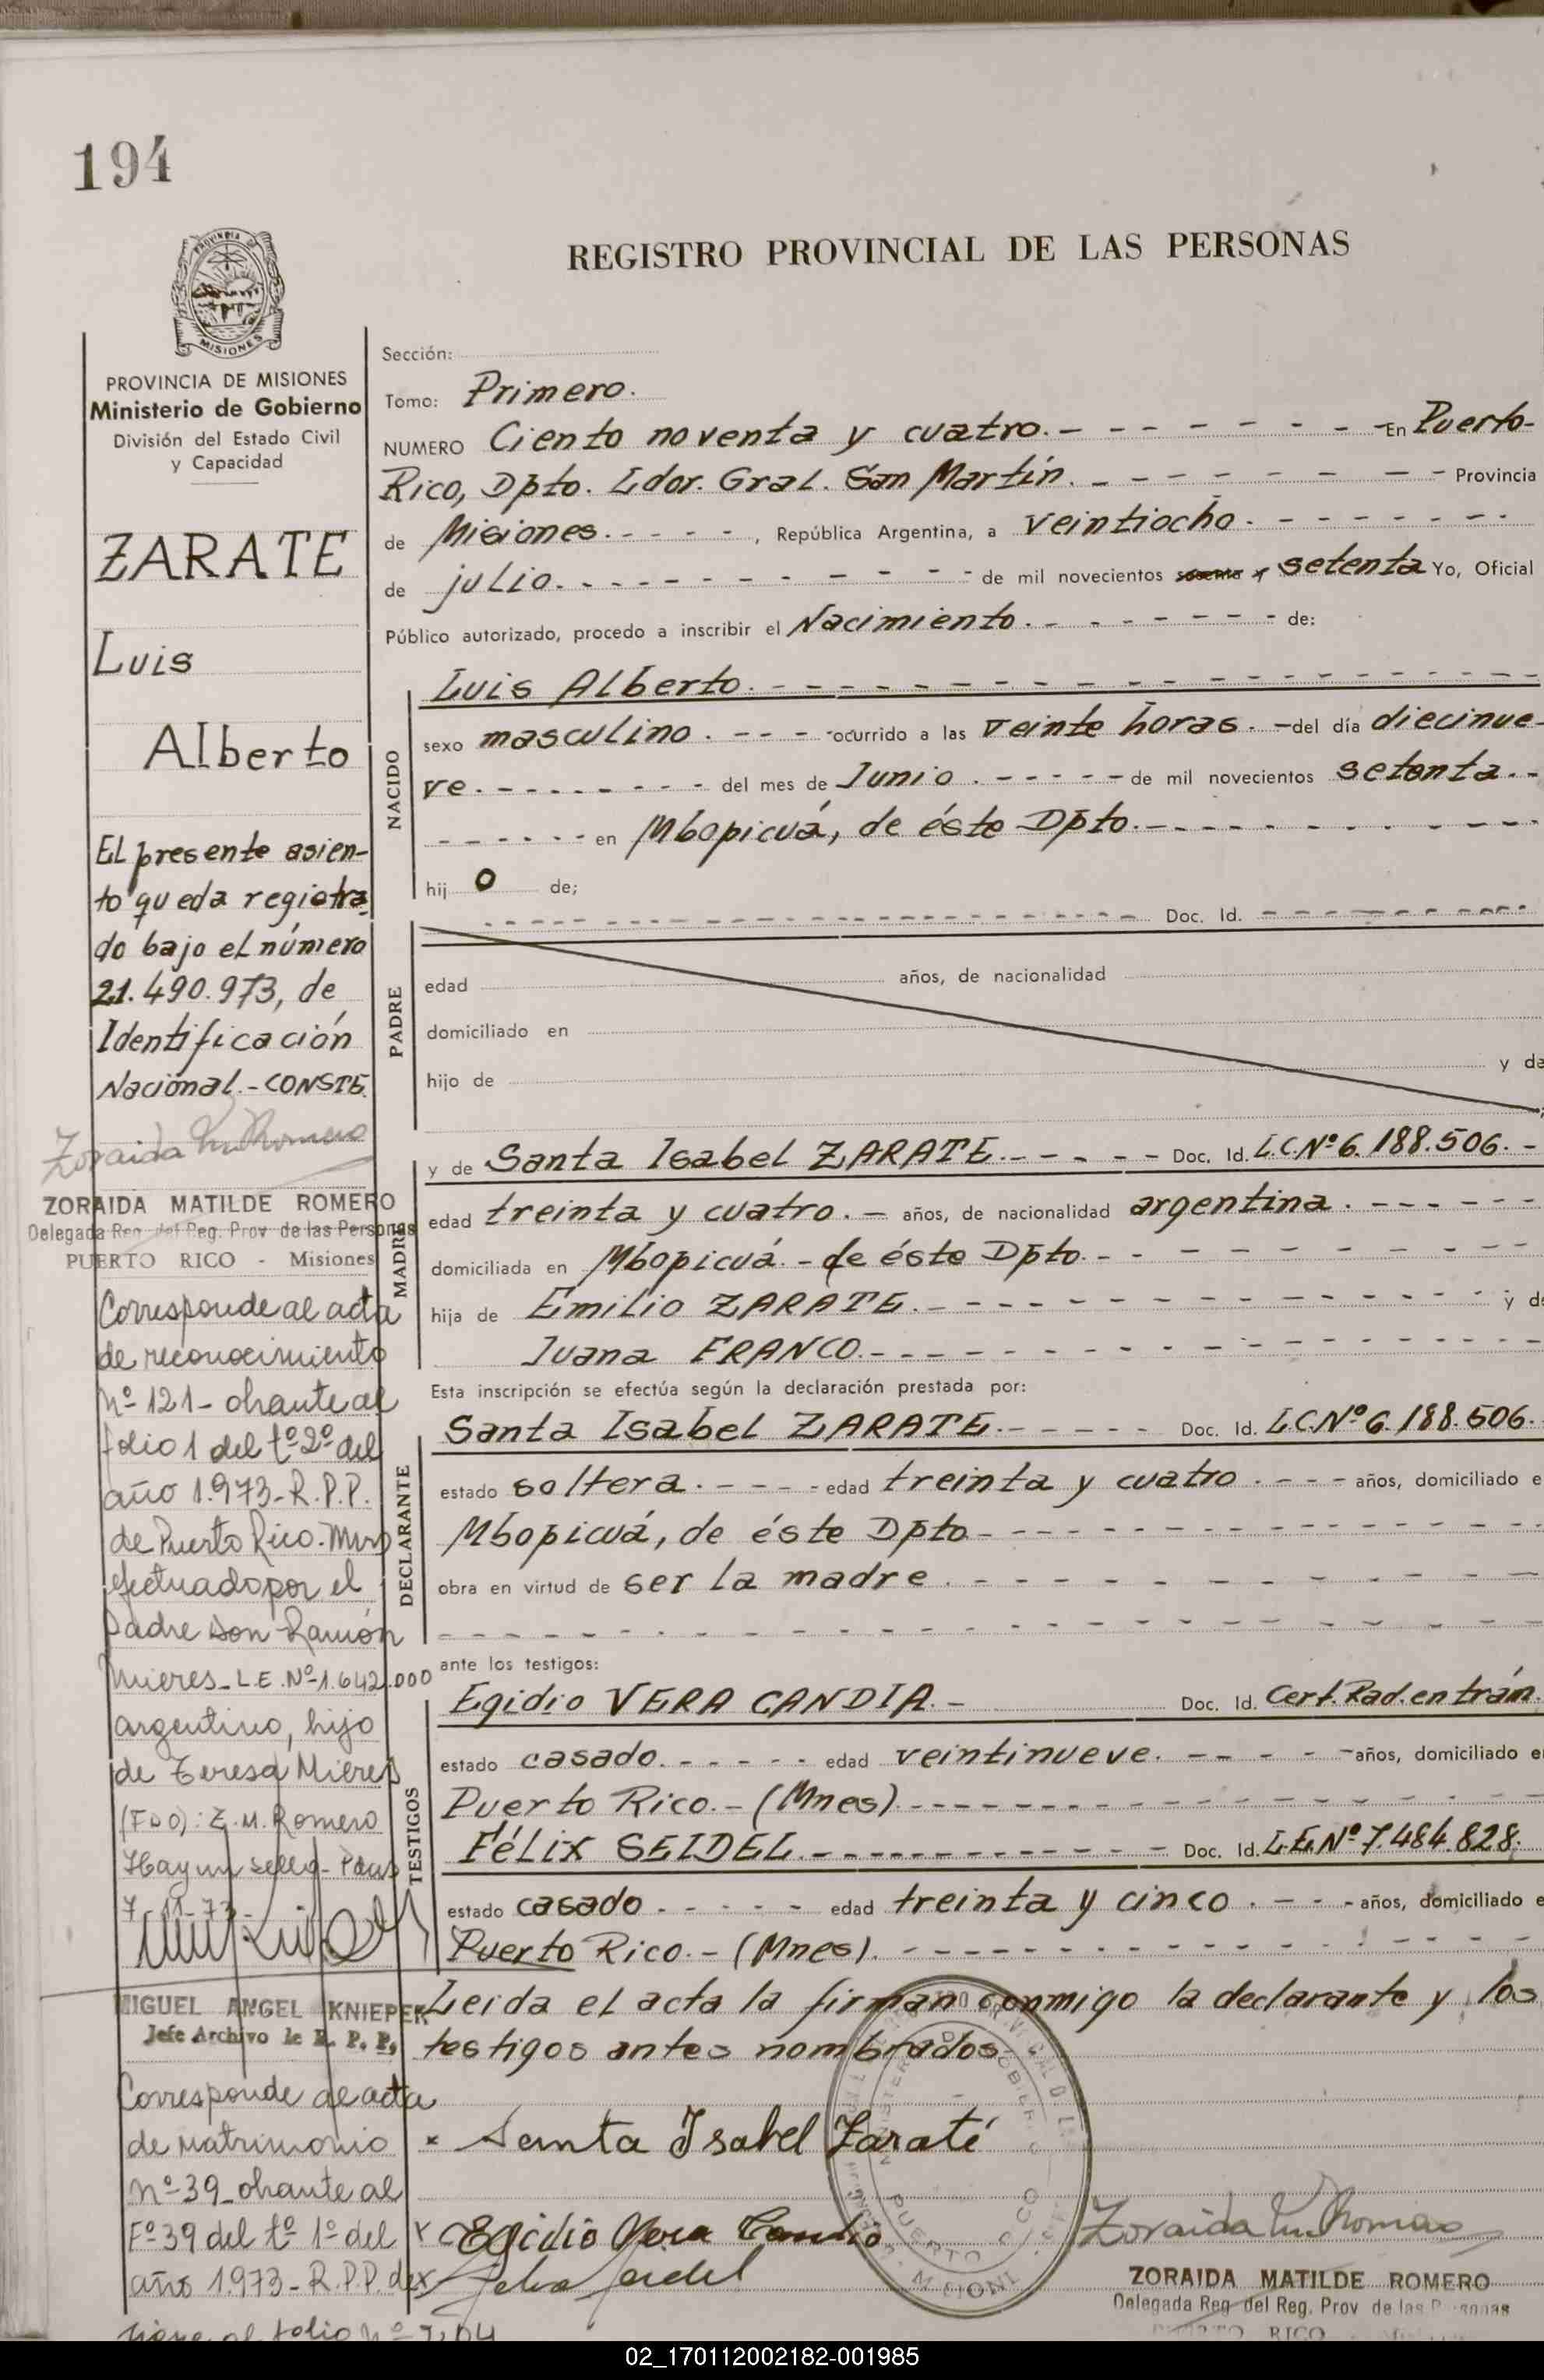 194
REGISTRO PROVINCIAL DE LAS PERSONAS
PROVINCIA
MISIONES
PROVINCIA DE MISIONES
Ministerio de Gobierno
División del Estado Civil
y Capacidad
ZARATE
Luis
Alberto
El presente asien-
to queda registra-
do bajo el número
21.490.973, de
Identificación
Nacional.- CONSTE.
Zoraida M. Romero
ZORAIDA MATILDE ROMERO
Delegada Reg. del Reg. Prov. de las Personas
PUERTO RICO - Misiones
Corresponde al acta
de reconocimiento
Nº 121- obrante al
folio 1 del tº 2º del
año 1.973- R.P.P.
de Puerto Rico. Mnes
efectuado por el
Padre Don Ramón
Mieres_ L.E. Nº 1.642.000
argentino, hijo
de Teresa Mieres
(FDO): Z. M. Romero
Hay un sello- Pdas
7-11-73-
MIGUEL ANGEL KNIEPER
Jefe Archivo de R. P. P.
Corresponde al acta
de matrimonio
Nº 39_ obrante al
Fº 39 del tº 1º del
año 1.973- R.P.P. de
Sección:
Tomo: Primero.
NUMERO Ciento noventa y cuatro.- En Puerto-
Rico, Dpto. Ldor. Gral. San Martín. - Provincia
de Misiones. - , República Argentina, a veintiocho. -
de julio. - de mil novecientos setenta Yo, Oficial
Público autorizado, procedo a inscribir el Nacimiento. - de:
NACIDO
Luis Alberto. -
sexo masculino. - ocurrido a las veinte horas. - del día diecinue-
ve. - del mes de Junio. - de mil novecientos setenta. -
- en Mbopicuá, de éste Dpto. -
hij o de;
PADRE
- Doc. Id. -
edad años, de nacionalidad
domiciliado en
hijo de y de
MADRE
y de Santa Isabel ZARATE. - Doc. Id. L.C.Nº 6.188.506. -
edad treinta y cuatro. - años, de nacionalidad argentina. -
domiciliada en Mbopicuá - de éste Dpto. -
hija de Emilio ZARATE. - y de
Juana FRANCO. -
Esta inscripción se efectúa según la declaración prestada por:
DECLARANTE
Santa Isabel ZARATE. - Doc. Id. L.C.Nº 6.188.506.
estado soltera. - edad treinta y cuatro. - años, domiciliado e
Mbopicuá, de éste Dpto -
obra en virtud de ser la madre. -
ante los testigos:
TESTIGOS
Egidio VERA CANDIA. - Doc. Id. Cert. Rad. en trám.
estado casado. - edad veintinueve. - años, domiciliado e
Puerto Rico. - (Mnes). -
Félix SEIDEL. - Doc. Id. L.E.Nº 7.484.828.
estado casado. - edad treinta y cinco. - años, domiciliado e
Puerto Rico. - (Mnes). -
Leida el acta la firman conmigo la declarante y los
testigos antes nombrados.
Santa Isabel Zaraté
Egidio Vera Candia
Zoraida M. Romero
ZORAIDA MATILDE ROMERO
Delegada Reg del Reg. Prov de las Personas
RICO
02_170112002182-001985